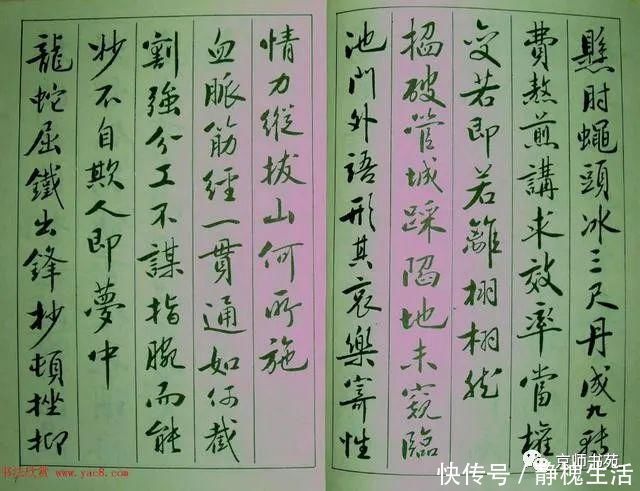 懸肘蠅頭冰三尺丹成九轉
費熬煎講求效率當權
變若即若離栩栩然
搯破管城踩陷地未窺臨
池門外語形其哀樂寄性
情力縱拔山何所施
血脈筋經一貫通如何截
割強分工不謀指腕而能
妙不自欺人即夢中
龍蛇屈鐵出鋒抄頓挫抑
书法欣赏 www.yac8.com
京师书苑
快传号／静槐生活